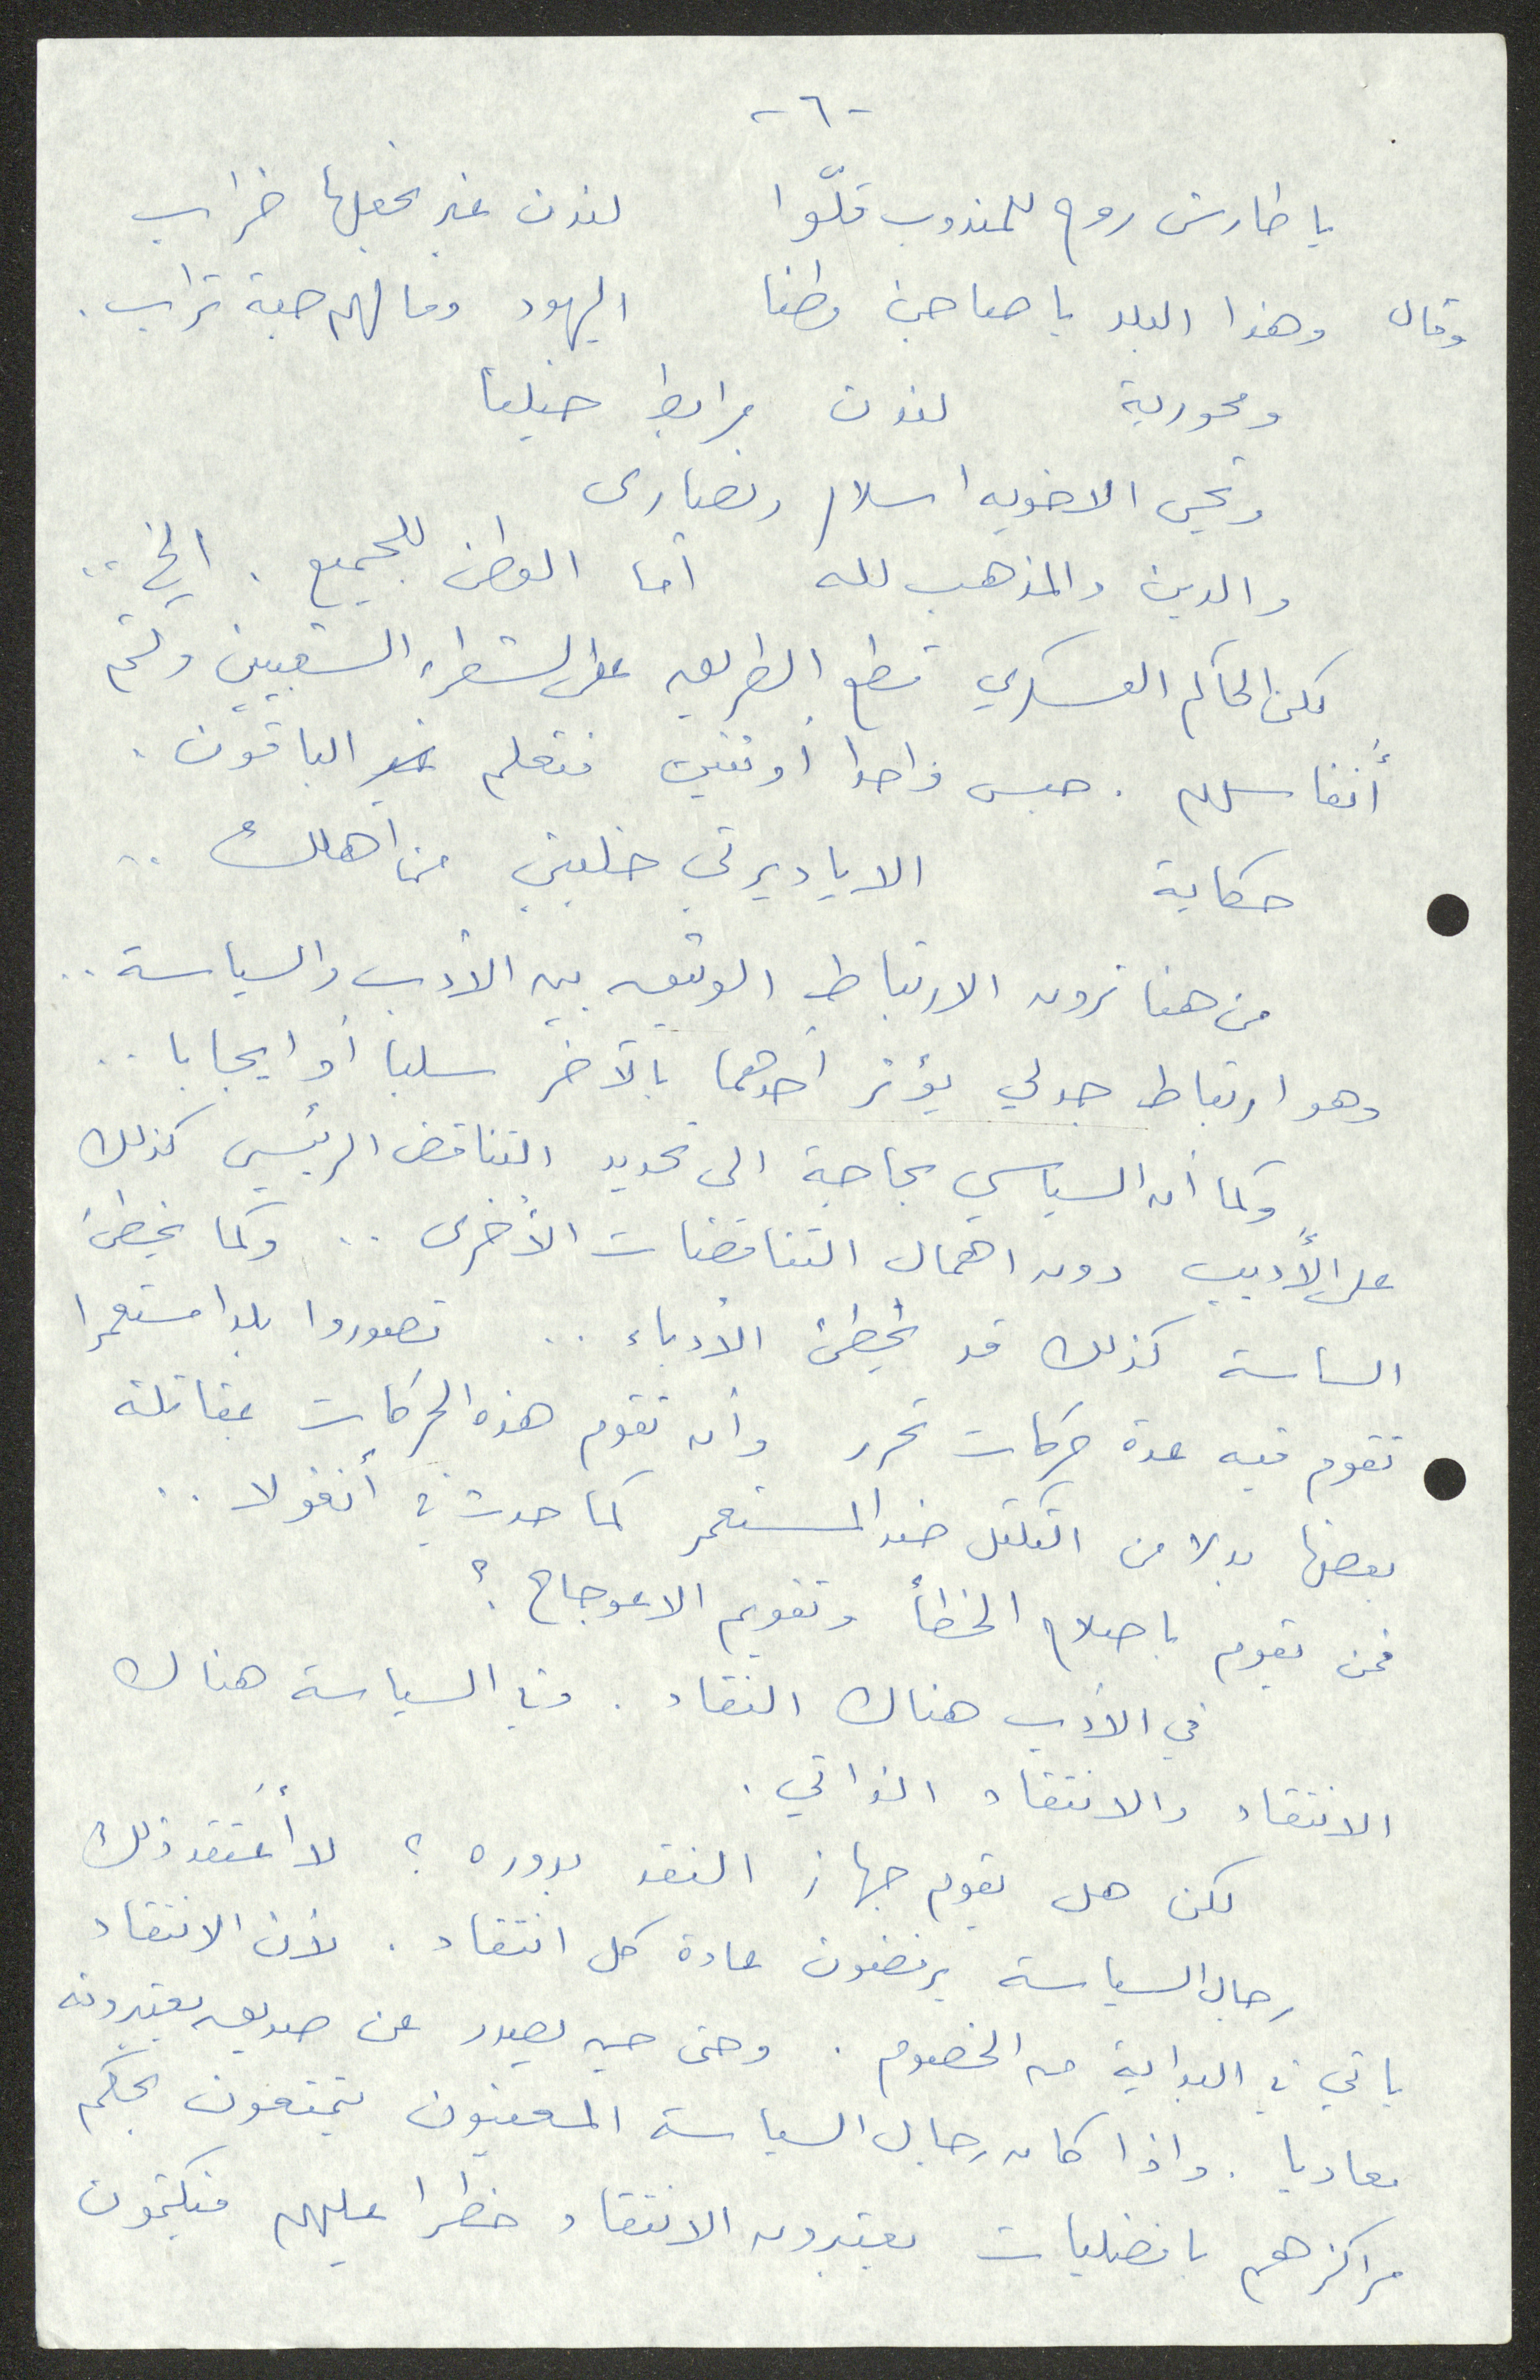 -٦-
يا طارش روح للمندوب قلّوا لندن غير نجعلها خراب
وقال وهذا البلد يا صاحبي وطنا اليهود وما لهم حبة تراب .
ومحوربة لندن مرابط خيلنا
ونحي الاخويه اسلام ونصارى
والدين والمذهب لله أما الوطن للجميع . الخ ..
لكن الحاكم العسكري قطع الطريق على الشعراء الشعبيين وكتم
أنفاسهم . حبس واحدا أو تنين فتعلم الباقون .
حكاية الا يا ديرتي خليتي من أهلك ..
من هنا نرون الارتباط الوثيق بين الأدب والسياسة ..
وهو ارتباط جدلي يؤثر أحدهما بالآخر سلبا أو ايجابا ..
وكما أن السياسي بحاجة الى تحديد التناقض الرئيسي كذلك
على الأديب دون اهمال التناقضات الأخرى .. وكما يخطئ
الساسة كذلك قد يُخطئ الأدباء .. تصوروا بلدا مستعمرا
تقوم فيه عدة حركات تحرر وأن تقوم هذه الحركات بمقاتلة
بعضها بدلا من التكتل ضد المستعمر كما حدث في أنغولا ..
فمن يقوم باصلاح الخطأ وتقويم الاعوجاج ؟
في الأدب هناك النقاد . وفي السياسة هناك
الانتقاد والانتقاد الذاتي .
لكن هل يقوم جهاز النقد بدوره ؟ لا أعتقد ذلك
رجال السياسة يرفضون عادة كل انتقاد . لأن الانتقاد
يأتي في البداية من الخصوم . وحتى حين يصدر عن صديق يعتبرونه
معاديا . واذا كان رجال السياسة المعنيون يتمتعون بحكم
مراكزهم بافضليات يعتبرون الانتقاد خطرا عليهم فيكتمون